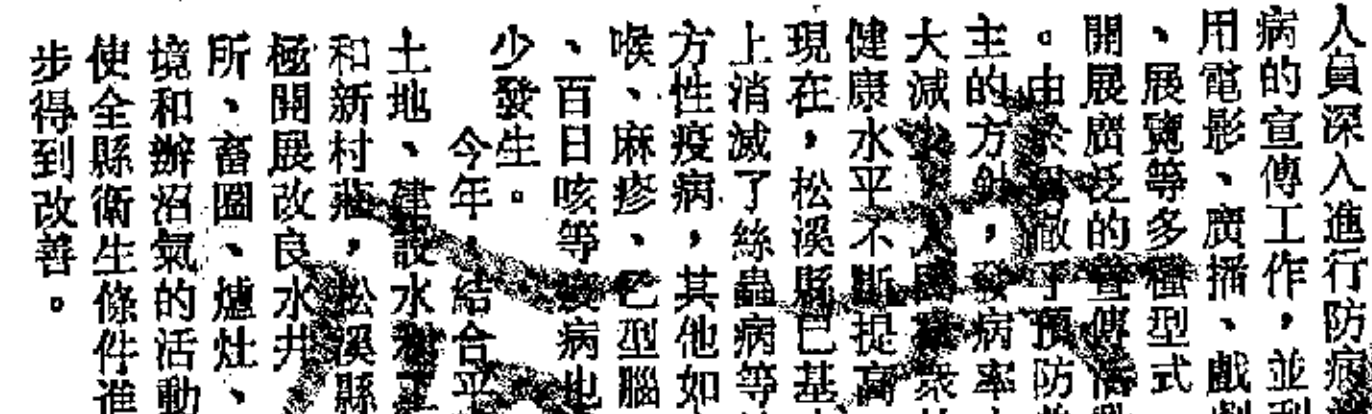 人員深入進行防病
病的宣傳工作，並利
用電影、廣播、戲劇
、展覽等多種型式
開展廣泛的宣傳活動
。由於貫徹了預防
主的方針，發病率
大減少，人民羣衆
健康水平不斷提高
現在，松溪縣已基
上消滅了絲蟲病等
方性疫病，其他如
喉、麻疹、乙型腦
、百日咳等疫病也
少發生。
今年，結合平
土地、建設水利工
和新村莊，松溪縣
極開展改良水井
所、畜圈、爐灶、
境和辦沼氣的活動
使全縣衛生條件進
步得到改善。